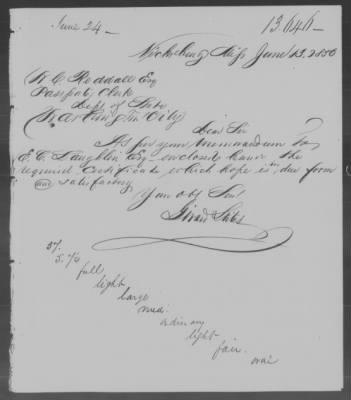 June 24 — 13646 —
Vicksburg Miss June 13. 1850
W. C. Reddall Esq
Passport Clerk
Dept of State
Washington City
Dear Sir
As per your memorandum to
E. C. Laughlin Esq enclosed have the
required Certificate which hope is in due form
and satisfactory
Your obt Servt
57.
5. 7/8
full
light
large
med.
ordinary
light
fair.
oval